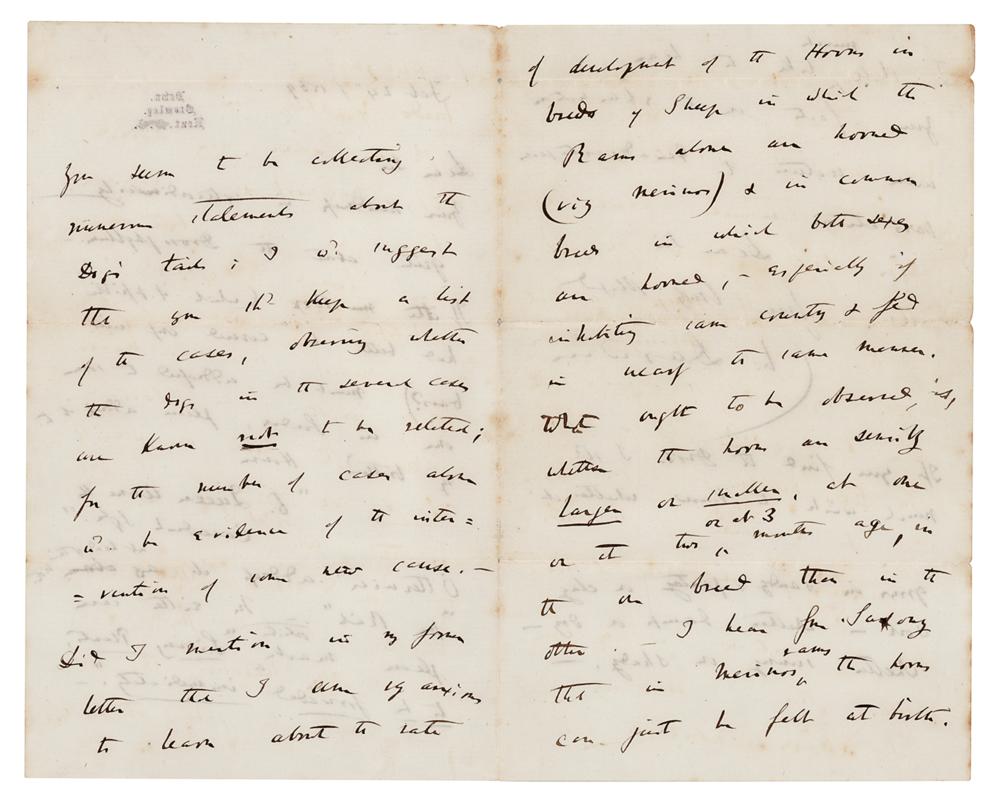 You seem to be collecting
numerous statements about the
Dogs tails; I wd. suggest
that you shd. keep a list
of the cases, observing whether
the dogs in the several cases
are known not to be related;
for the number of cases alone
wd. be evidence of the inter=
=vention of some new cause.—
Did I mention in my former
letter that I am very anxious
to learn about the rate
of development of the Horns in
breeds of Sheep in which the
Rams alone are horned
(viz merinos) & in common
breeds in which both sexes
are horned,— especially if
inhabiting same country & fed
in nearly the same manner.
What ought to be observed, is,
whether the horns are sensibly
larger or smaller, at one
or at 3
or at two months age, in
the one breed than in the
other. I hear from Saxony
rams
that in merinos the horns
can just be felt at birth.